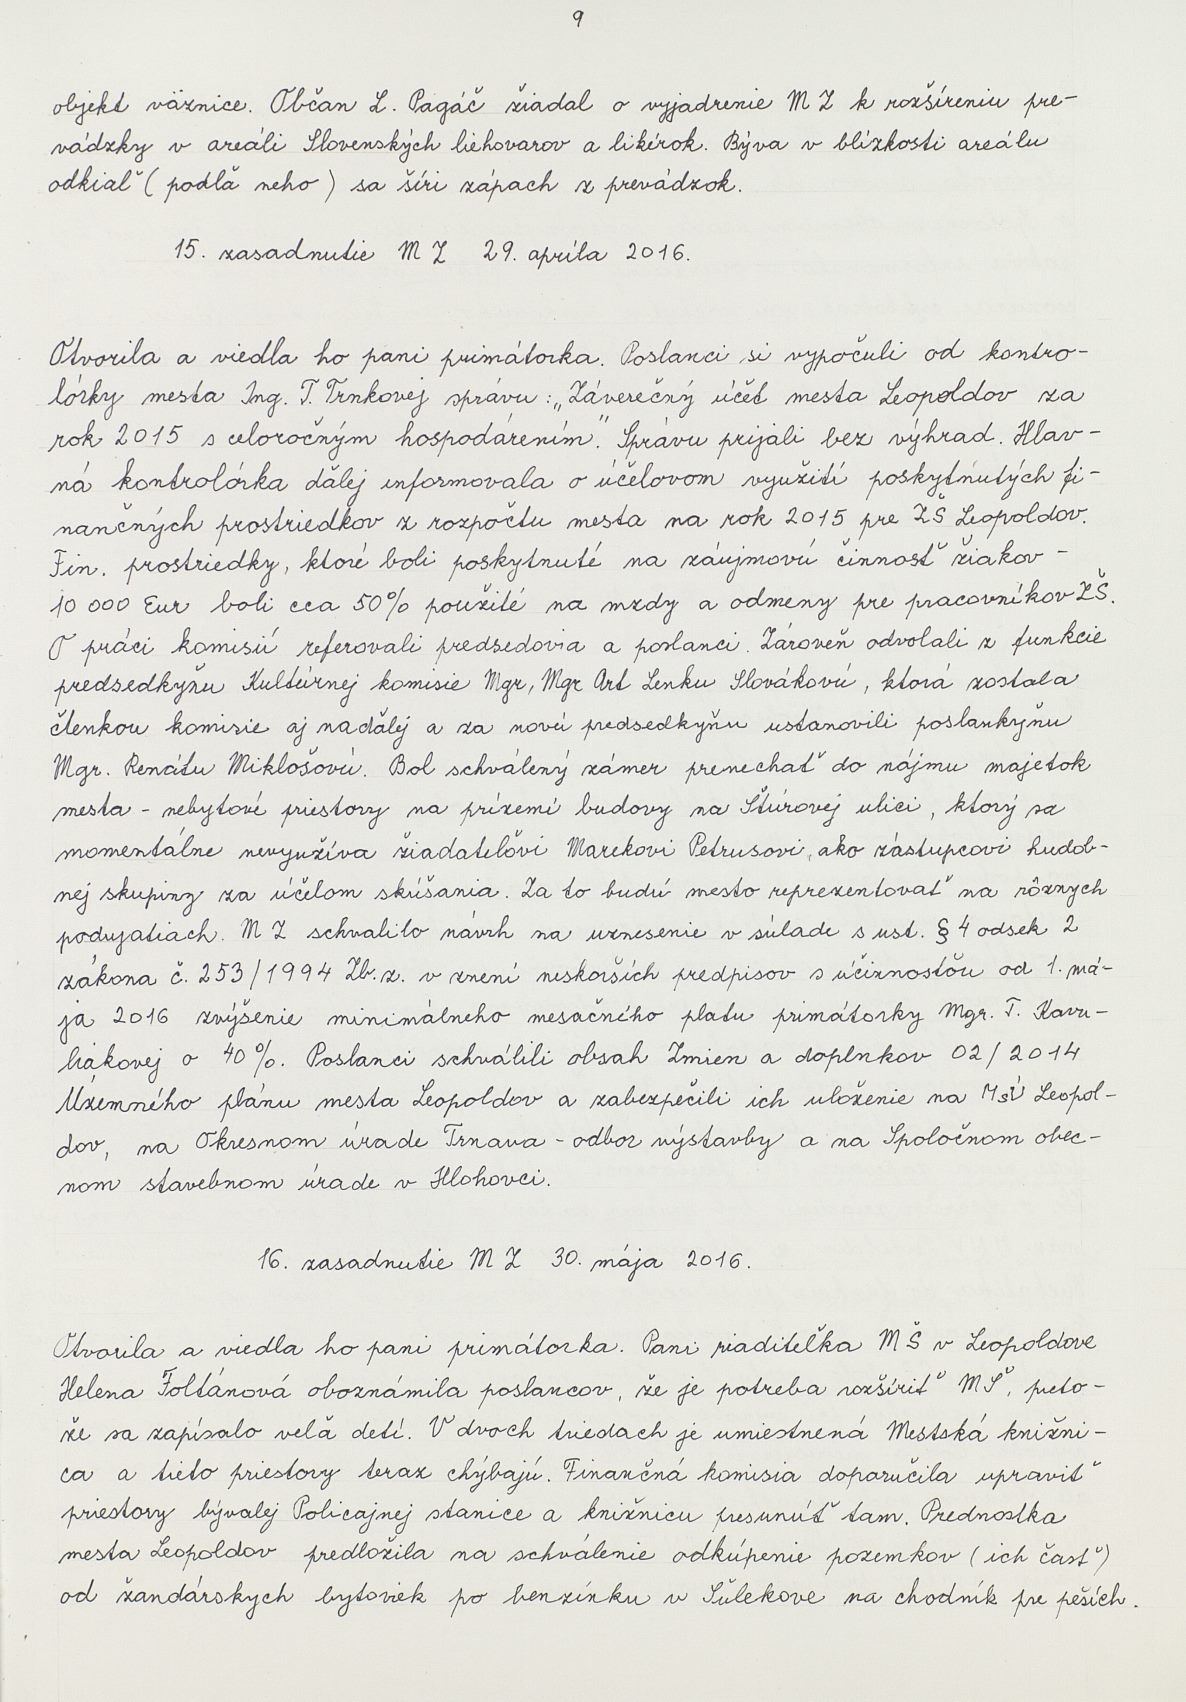 9
objekt väznice. Občan L. Pagáč žiadal o vyjadrenie M Z k rozšíreniu pre-
vádzky v areáli Slovenských liehovarov a likérok. Býva v blízkosti areálu
odkiaľ (podľa neho) sa šíri zápach z prevádzok.
15. zasadnutie M Z 29. apríla 2016.
Otvorila a viedla ho pani primátorka. Poslanci si vypočuli od kontro-
lórky mesta Ing. T. Trnkovej správu: „Záverečný účet mesta Leopoldov za
rok 2015 s celoročným hospodárením." Správu prijali bez výhrad. Hlav-
ná kontrolórka ďalej informovala o účelovom využití poskytnutých fi-
nančných prostriedkov z rozpočtu mesta na rok 2015 pre ZŠ Leopoldov.
Fin. prostriedky, ktoré boli poskytnuté na záujmovú činnosť žiakov -
10 000 Eur boli cca 50% použité na mzdy a odmeny pre pracovníkov ZŠ.
O práci komisií referovali predsedovia a poslanci. Zároveň odvolali z funkcie
predsedkyňu Kultúrnej komisie Mgr, Mgr Art Lenku Slovákovú, ktorá zostala
členkou komisie aj naďalej a za novú predsedkyňu ustanovili poslankyňu
Mgr. Renátu Miklošovú. Bol schválený zámer prenechať do nájmu majetok
mesta - nebytové priestory na prízemí budovy na Štúrovej ulici, ktorý sa
momentálne nevyužíva žiadateľovi Marekovi Petrusovi, ako zástupcovi hudob-
nej skupiny za účelom skúšania. Za to budú mesto reprezentovať na rôznych
podujatiach. M Z schvalilo návrh na uznesenie v súlade s ust. § 4 odsek 2
zákona č. 253/1994 Zb.z. v znení neskorších predpisov s účinnosťou od 1. má-
ja 2016 zvýšenie minimálneho mesačného platu primátorky Mgr. T. Kavu-
liakovej o 40%. Poslanci schválili obsah Zmien a doplnkov 02/2014
Územného plánu mesta Leopoldov a zabezpečili ich uloženie na MsÚ Leopol-
dov, na Okresnom úrade Trnava - odbor výstavby a na Spoločnom obec-
nom stavebnom úrade v Hlohovci.
16. zasadnutie M Z 30. mája 2016.
Otvorila a viedla ho pani primátorka. Pani riaditeľka MŠ v Leopoldove
Helena Foltánová oboznámila poslancov, že je potreba rozšíriť MŠ, preto-
že sa zapísalo veľa detí. V dvoch triedach je umiestnená Mestská knižni-
ca a tieto priestory teraz chýbajú. Finančná komisia doporučila upraviť
priestory bývalej Policajnej stanice a knižnicu presunúť tam. Prednostka
mesta Leopoldov predložila na schválenie odkúpenie pozemkov (ich časť)
od žandárskych bytoviek po benzínku v Šulekove na chodník pre peších.